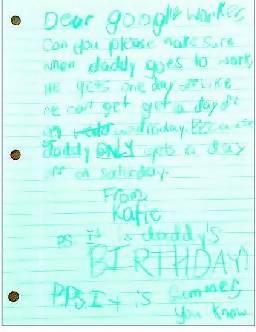 Dear google worker,
Can you please make sure
when daddy goes to work,
he gets one day off. Like
he can get a day off
on wednesday. Because
daddy ONLY gets a day
off on saturday.
From,
Katie
P.S. It is daddy's
BIRTHDAY!
P.P.S. It is summer
you know